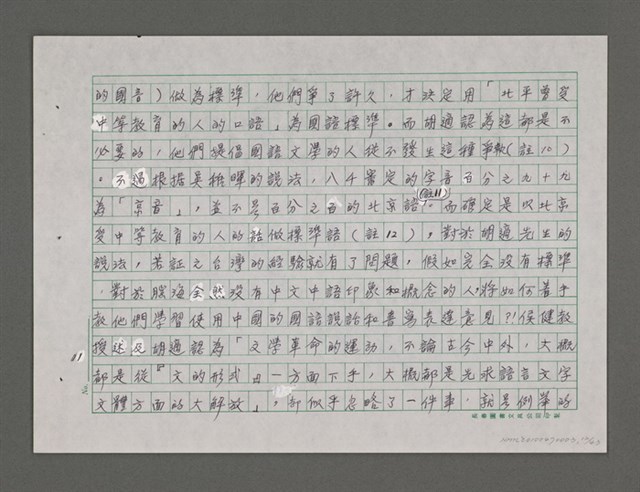 的國音）做為標準，他們爭了許久，才決定用「北平曾受
中等教育的人的口語」為國語標準。而胡適認為這都是不
必要的，他們提倡國語文學的人從不發生這種爭執（註10）
。不過根據吳稚暉的說法，八千審定的字音百分之九十九
為「京音」，並不是百分之百的北京語（註11）。而確定是以北京
受中等教育的人的話做標準語（註12），對於胡適先生的
說法，若証之台灣的經驗就有了問題，假如完全沒有標準
，對於腦海全然沒有中文中語印象和概念的人，將如何着手
教他們學習使用中國的國語說話和書寫表達意見？！侯健教
授述及胡適認為「文學革命的運動，不論古今中外，大概
都是從『文的形式』一方面下手，大概都是先求語言文字
文體方面的大解放」，却似乎忽略了一件事，就是例舉的
11
No.